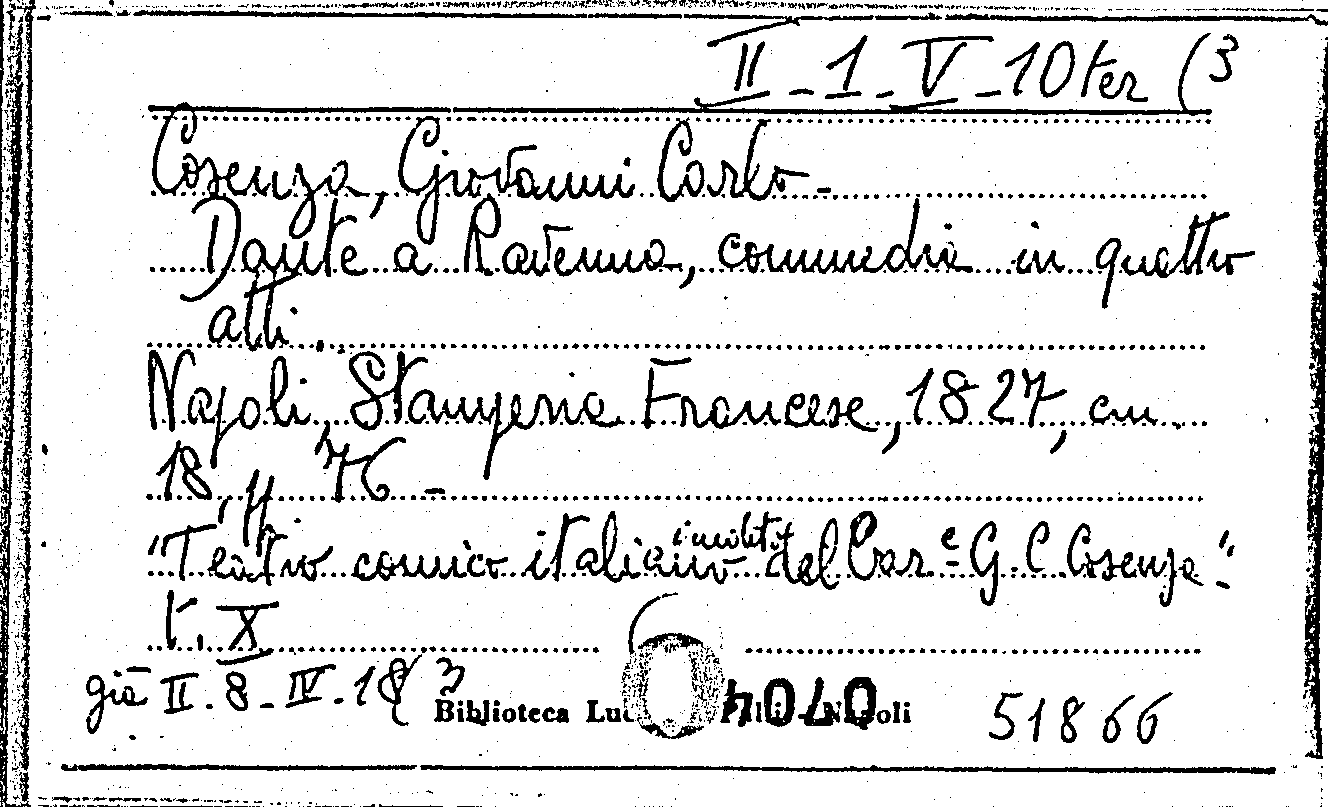 II-1-V-10 ter (3
Cosenza, Giovanni Carlo-
Dante a Ravenna, commedia in quattro
atti.
Napoli, Stamperia Francese, 1827, cm.
18, pp. 76 -
"Teatro comico italiano inedito del Cav.e G. C. Cosenza".
t. X
già II-8-IV-18 (3
Biblioteca Luc Napoli 51866